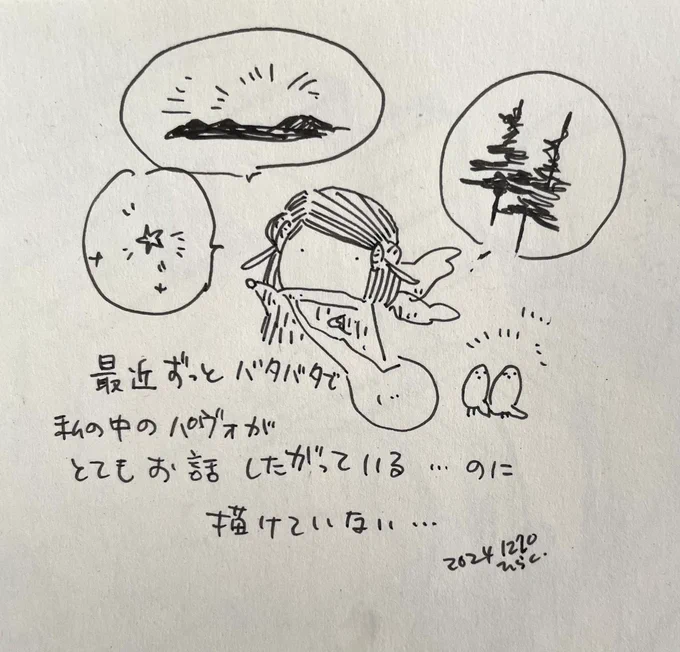 最近ずっとバタバタで
私の中のパヴォが
とてもお話したがっている…のに
描けていない…
2024 1220